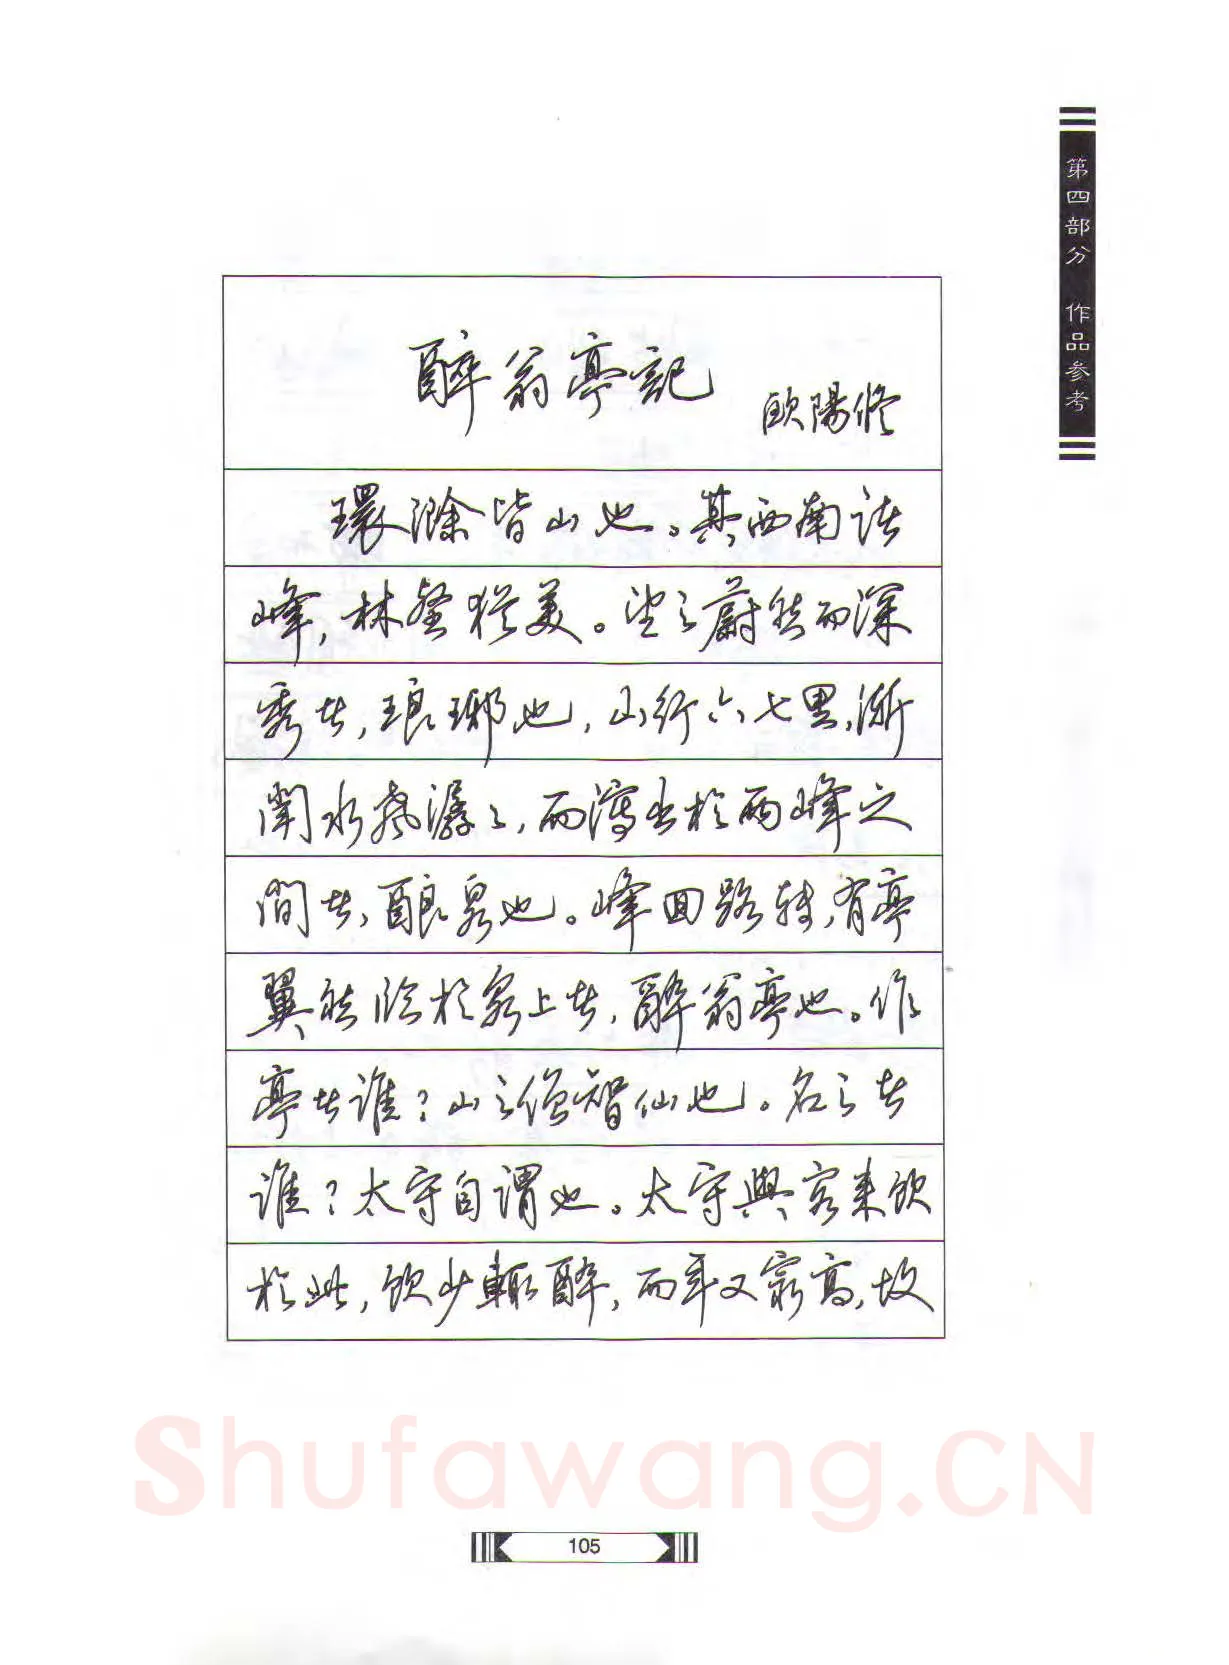 第四部分 作品参考
醉翁亭記
歐陽修
環滁皆山也。其西南諸
峰,林壑猶美。望之蔚然而深
秀者,琅琊也,山行六七里,漸
聞水聲潺々,而瀉出於兩峰之
間者,釀泉也。峰回路轉,有亭
翼然臨於泉上者,醉翁亭也。作
亭者誰?山之僧智仙也。名之者
誰?太守自謂也。太守與客来飲
於此,飲少輒醉,而年又窮高,故
Shufawang.CN
105